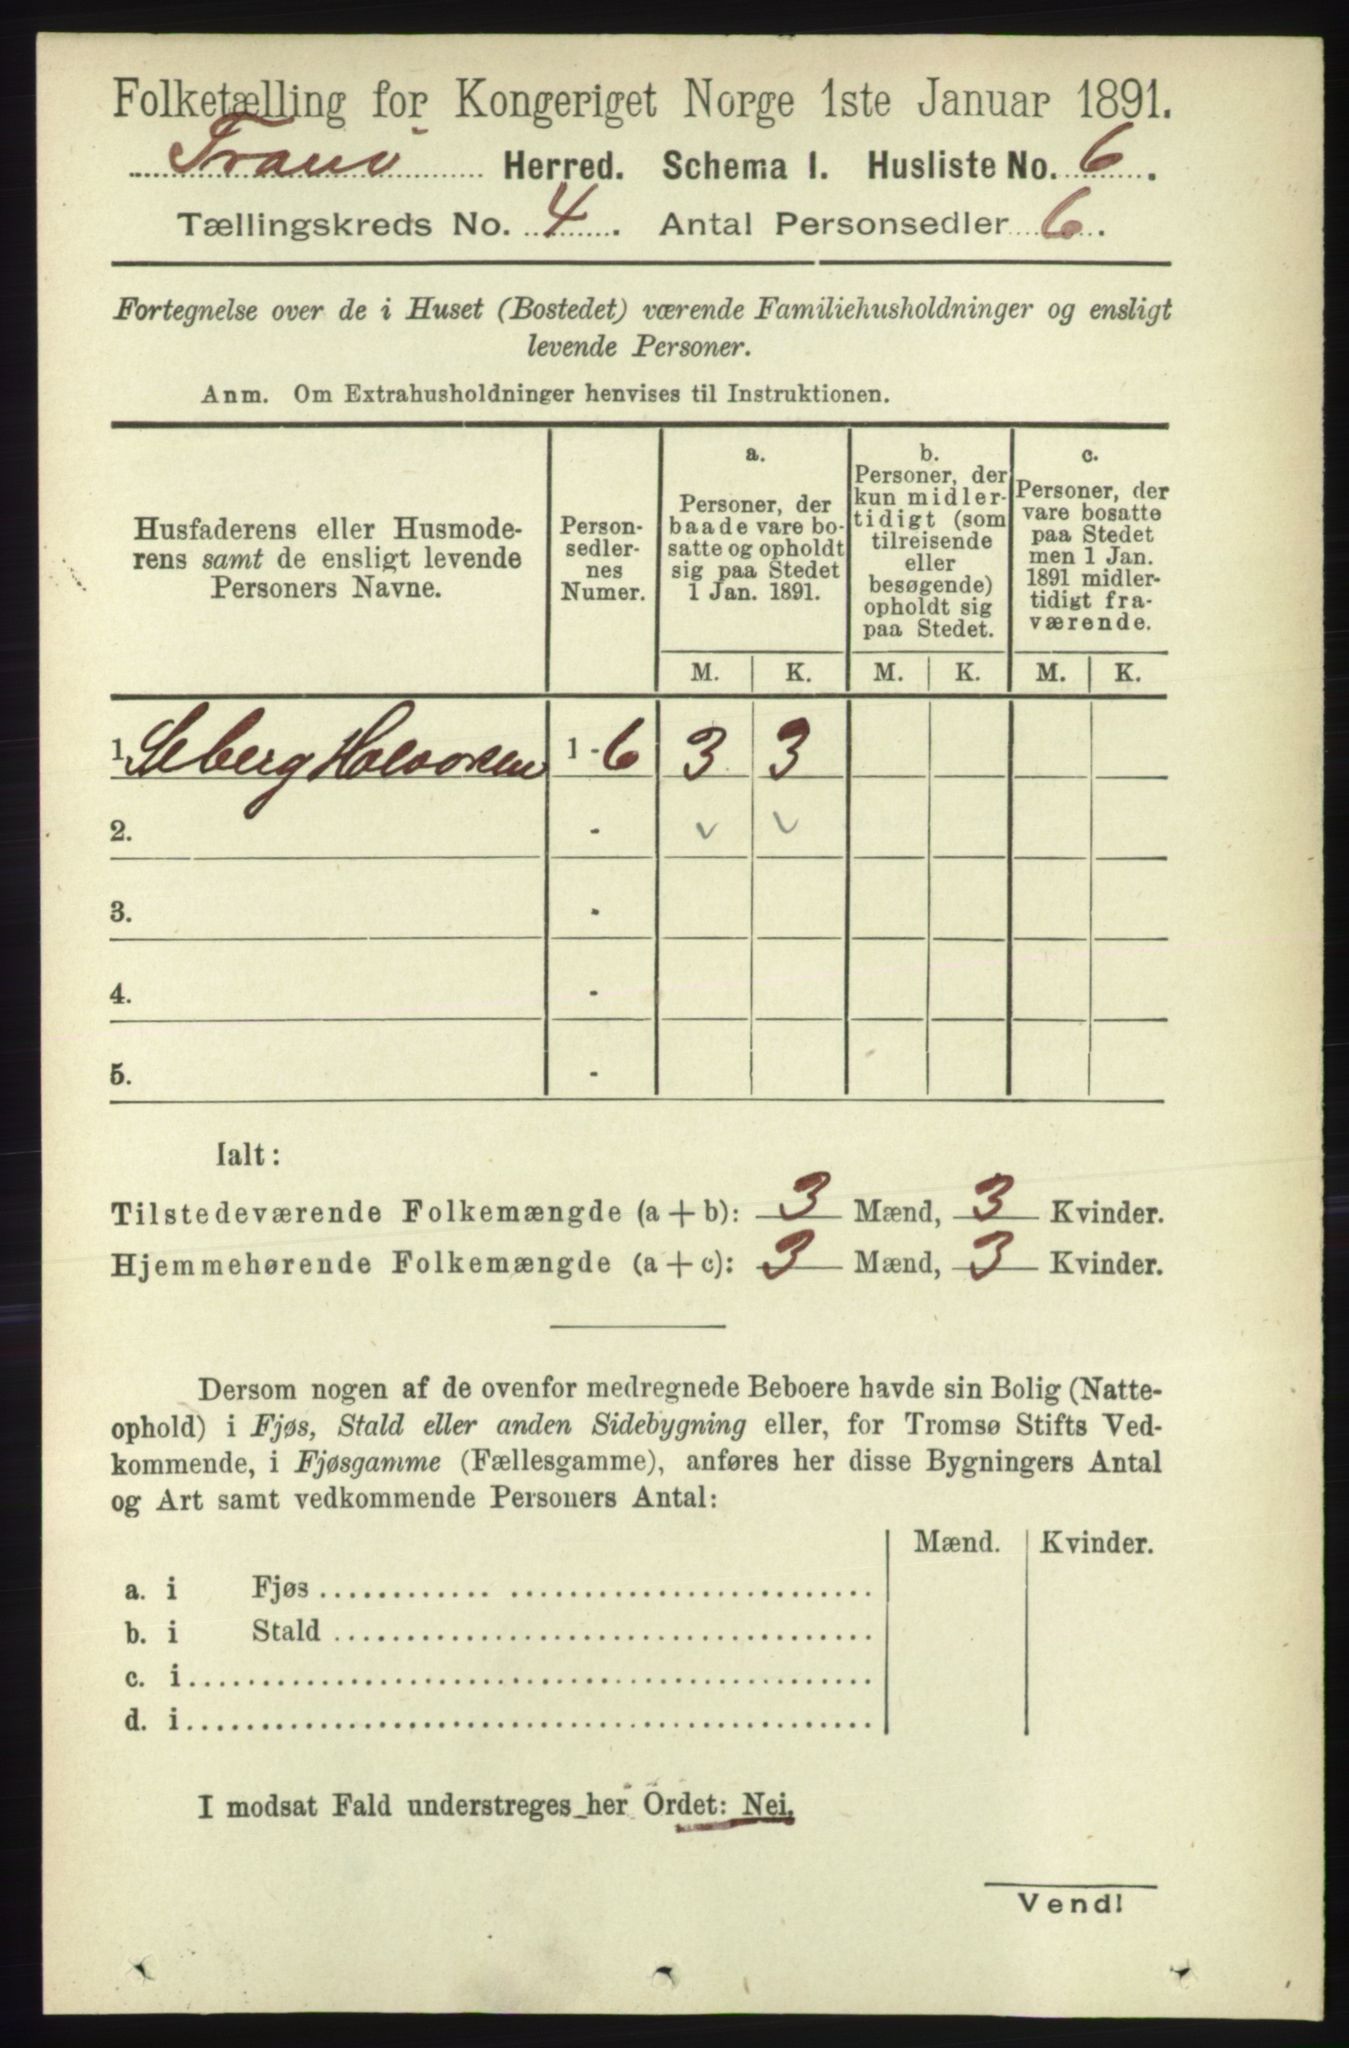 Folketælling for Kongeriget Norge 1ste Januar 1891.
Tranö Herred. Schema I. Husliste No. 6.
Tællingskreds No. 4. Antal Personsedler 6.
Fortegnelse over de i Huset (Bostedet) værende Familiehusholdninger og ensligt
levende Personer.
Anm. Om Extrahusholdninger henvises til Instruktionen.
Husfaderens eller Husmode-
rens samt de ensligt levende
Personers Navne.
Person-
sedler-
nes
Numer.
a.
Personer, der
baade vare bo-
satte og opholdt
sig paa Stedet
1 Jan. 1891.
b.
Personer, der
kun midler-
tidigt (som
tilreisende
eller
besøgende)
opholdt sig
paa Stedet.
c.
Personer, der
vare bosatte
paa Stedet
men 1 Jan.
1891 midler-
tidigt fra-
værende.
M. K. M. K. M. K.
1. Seberg 1 - 6 3 3
2. -
3. -
4. -
5. -
Ialt:
Tilstedeværende Folkemængde (a + b): 3 Mænd, 3 Kvinder.
Hjemmehørende Folkemængde (a + c): 3 Mænd, 3 Kvinder.
Dersom nogen af de ovenfor medregnede Beboere havde sin Bolig (Natte-
ophold) i Fjøs, Stald eller anden Sidebygning eller, for Tromsø Stifts Ved-
kommende, i Fjøsgamme (Fællesgamme), anføres her disse Bygningers Antal
og Art samt vedkommende Personers Antal:
Mænd. Kvinder.
a. i Fjøs
b. i Stald
c. i
d. i
I modsat Fald understreges her Ordet: Nei.
Vend!